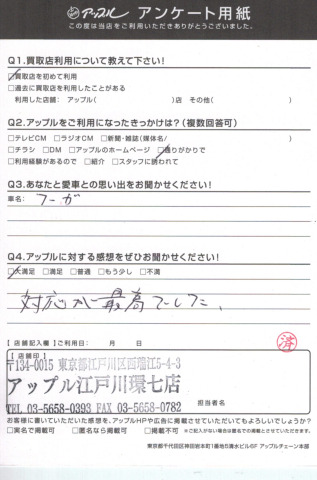 アップル アンケート用紙
この度は当店をご利用いただきありがとうございました。
Q1.買取店利用について教えて下さい!
☑買取店を初めて利用
□過去に買取店を利用したことがある
利用した店舗: アップル( )店 その他( )
Q2.アップルをご利用になったきっかけは?(複数回答可)
□テレビCM □ラジオCM □新聞・雑誌(媒体名/ )
□チラシ □DM □アップルのホームページ ☑通りがかりで
□利用経験があるので □紹介 □スタッフに誘われて
Q3.あなたと愛車との思い出をお聞かせください!
車名: フーガ
Q4.アップルに対する感想をぜひお聞かせください!
☑大満足 □満足 □普通 □もう少し □不満
対応が最高でした。
【店舗記入欄】ご利用日: 月 日
済
【店舗印】
〒134-0015 東京都江戸川区西瑞江5-4-3
アップル江戸川環七店
TEL 03-5658-0393 FAX 03-5658-0782
担当者名
お客様に書いていただいた感想を、アップルHPや広告に掲載させていただいてもよろしいでしょうか?
□実名で掲載可 □匿名なら掲載可 □掲載不可 ※ご記入がない場合は匿名での掲載とさせていただきます。
東京都千代田区神田岩本町1番地5清水ビル6F アップルチェーン本部